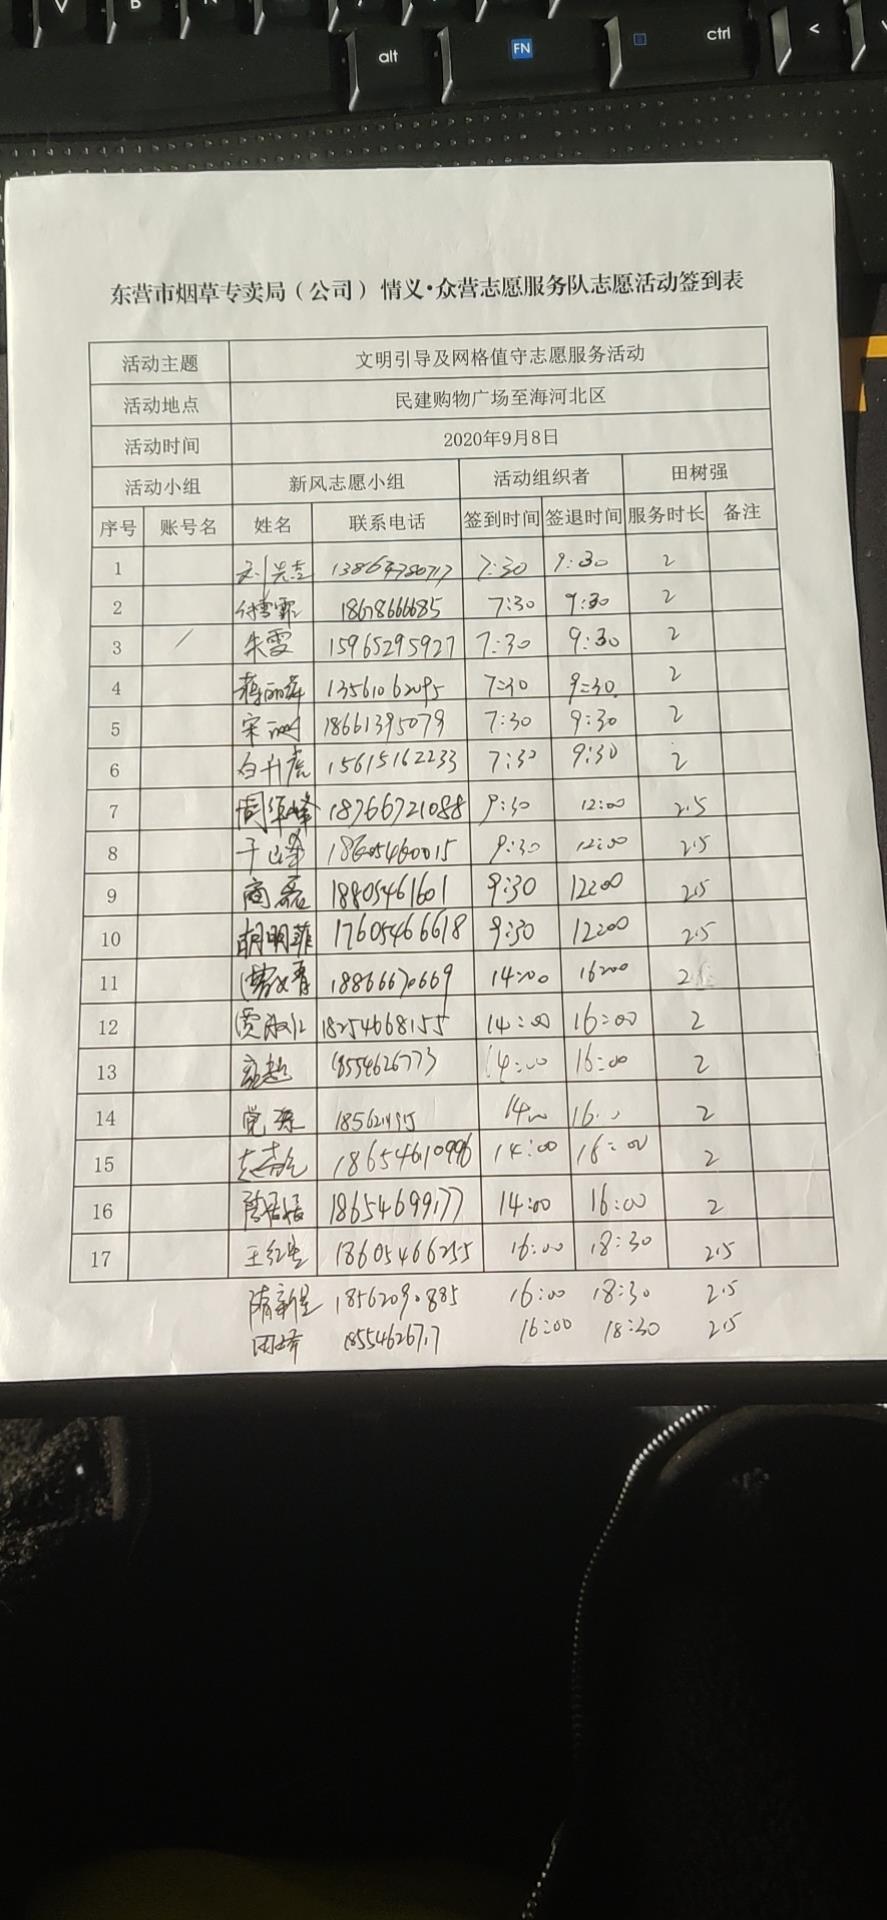 V B N
alt FN ctrl <
东营市烟草专卖局（公司）情义·众营志愿服务队志愿活动签到表
活动主题 文明引导及网格值守志愿服务活动
活动地点 民建购物广场至海河北区
活动时间 2020年9月8日
活动小组 新风志愿小组 活动组织者 田树强
序号 账号名 姓名 联系电话 签到时间 签退时间 服务时长 备注
1 7:30 9:30 2
2 18678666685 7:30 9:30 2
3 朱雯 15965295927 7:30 9:30 2
4 13561062095 7:30 9:30 2
5 18661395079 7:30 9:30 2
6 白升虎 15615162233 7:30 9:30 2
7 周军峰 18766721088 9:30 12:00 2.5
8 18605460015 9:30 12:00 2.5
9 商磊 18805461601 9:30 12:00 2.5
10 胡明菲 17605466618 9:30 12:00 2.5
11 18866670669 14:00 16:00 2
12 18254668155 14:00 16:00 2
13 14:00 16:00 2
14 2
15 18654610996 14:00 16:00 2
16 18654699177 14:00 16:00 2
17 18605466255 16:00 18:30 2.5
隋新星 18562090885 16:00 18:30 2.5
16:00 18:30 2.5